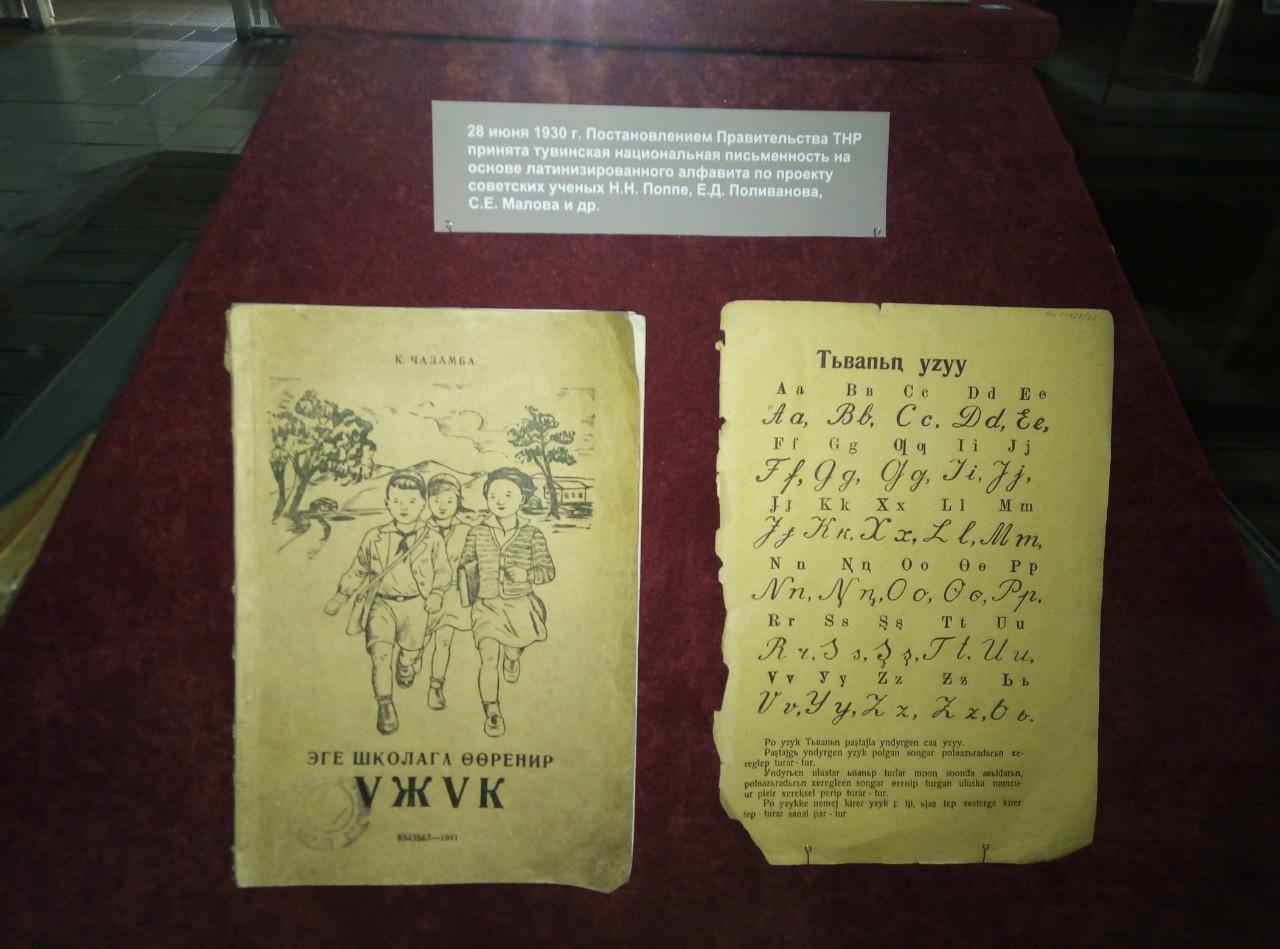 28 июня 1930 г. Постановлением Правительства ТНР
принята тувинская национальная письменность на
основе латинизированного алфавита по проекту
советских ученых Н.Н. Поппе, Е.Д. Поливанова,
С.Е. Малова и др.
К. ЧАДАМБА
ЭГЕ ШКОЛАГА ӨӨРЕНИР
ҮЖҮК
КЫЗЫЛ—1941
Tьвапьꞑ yzyy
A a B ʙ C c D d E e
Aa, Bb, Cc, Dd, Ee,
F f G g Ƣ ƣ I i J j
Ff, Gg, Ƣƣ, Ii, Jj,
Ɉ ɉ K k X x L l M m
Ɉɉ Kк, Xx, Ll, Mm,
N n Ꞑ ꞑ O o Ɵ ɵ P p
Nn, Ꞑꞑ, Oo, Ɵɵ, Pp,
R r S s Ş ş T t U u
Rr, Ss, Şş, Tt, Uu,
V v Y y Z z Ƶ ƶ Ь ь
Vv, Yy, Zz, Ƶƶ, Ьь.
Po yzyk Tьвапьꞑ paştajla yndyrgen caa yzyy.
Paştajgь yndyrgen yzyk polgan songar
reglep turar-tur.
Yndyrьen uluştar turlar mooꞑ soonda
xeregleen songar ɵrenip turgan uluska nomcu-
ur pizir xereksel perip turar-tur.
Po yzykke nemej kirer yzyk tep sɵsterge kirer
tep-turar sanal par-tur